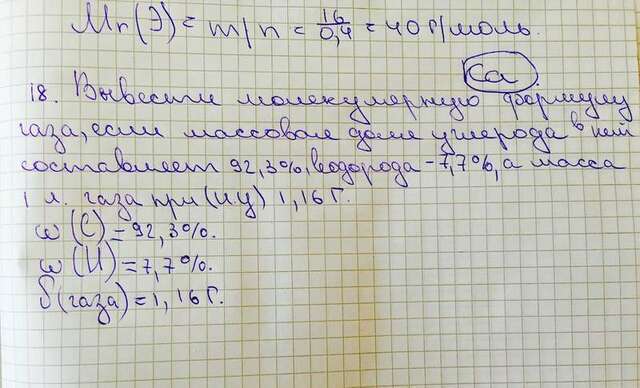 Mr(Э) = m/n = 16/0,4 = 40 г/моль.
Ca
18. Вывести молекулярную формулу
газа, если массовая доля углерода в нем
составляет 92,3%, водорода - 7,7%, а масса
1 л. газа при (н.у) 1,16 г.
ω(C) = 92,3%.
ω(H) = 7,7%.
δ(газа) = 1,16 г.